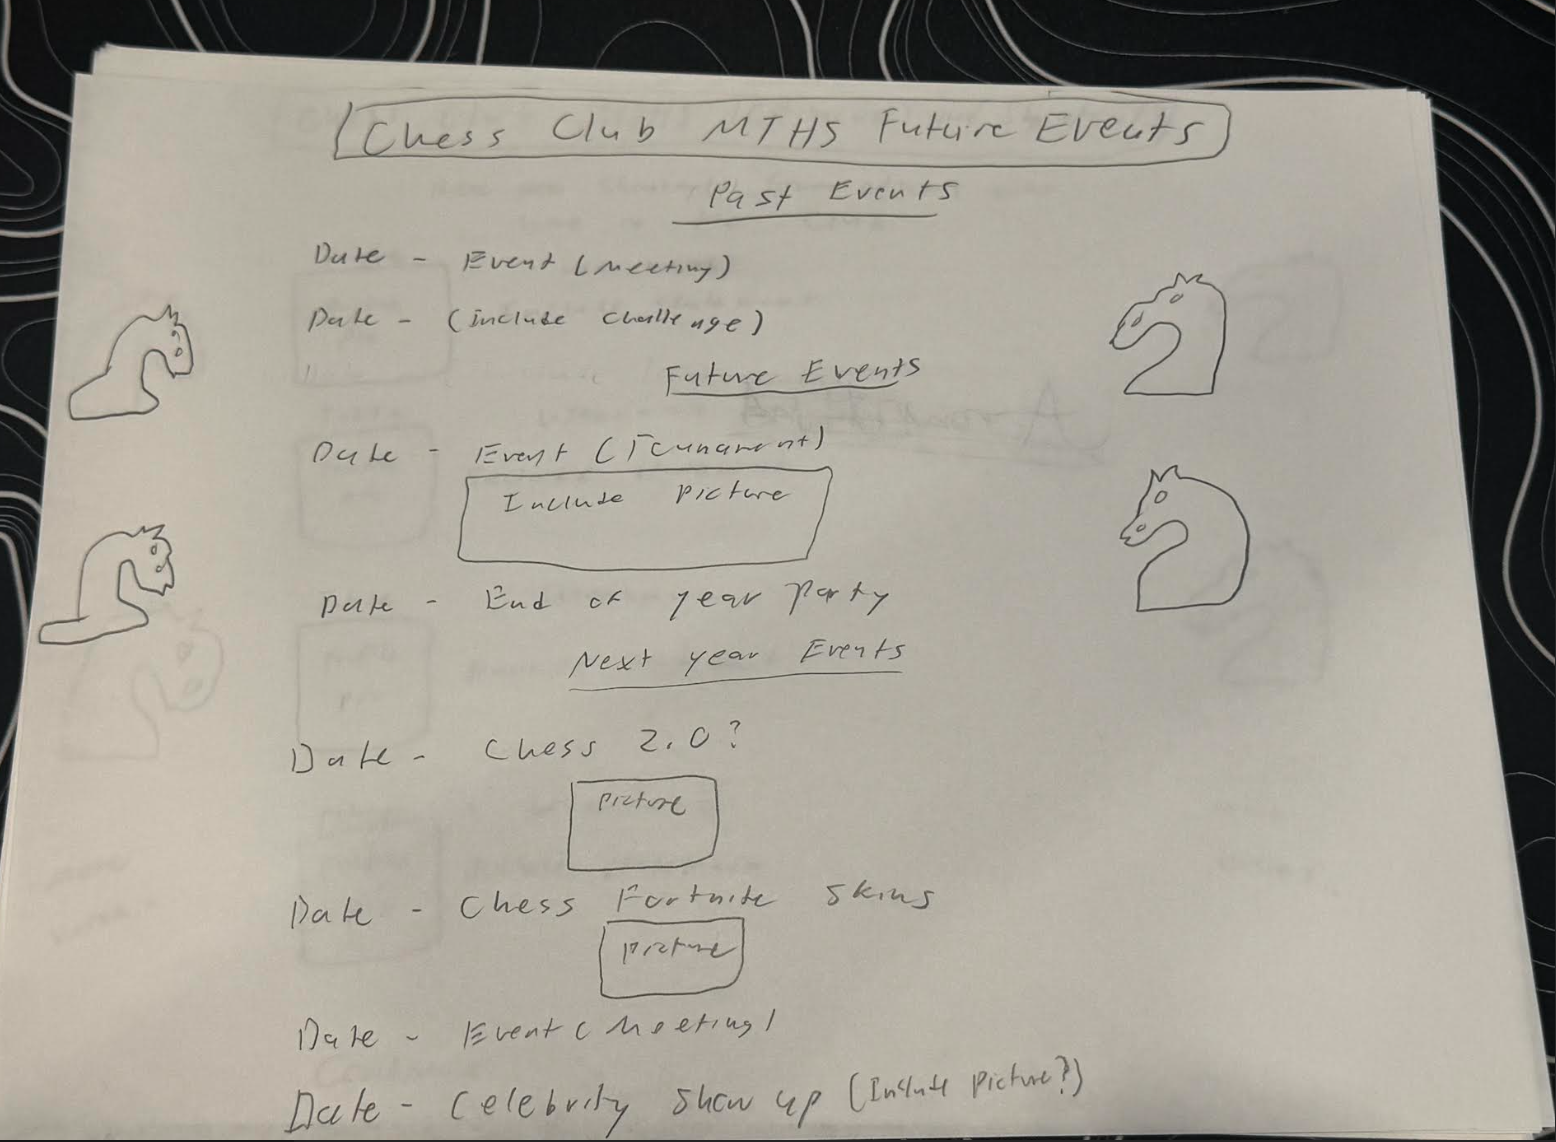 Chess Club MTHS Future Events
Past Events
Date - Event (Meeting)
Date - (include challenge)
Future Events
Date - Event (Tournament)
Include Picture
Date - End of year party
Next year Events
Date - Chess 2.0?
picture
Date - Chess Fortnite skins
picture
Date - Event (Meeting)
Date - Celebrity show up (Include picture?)